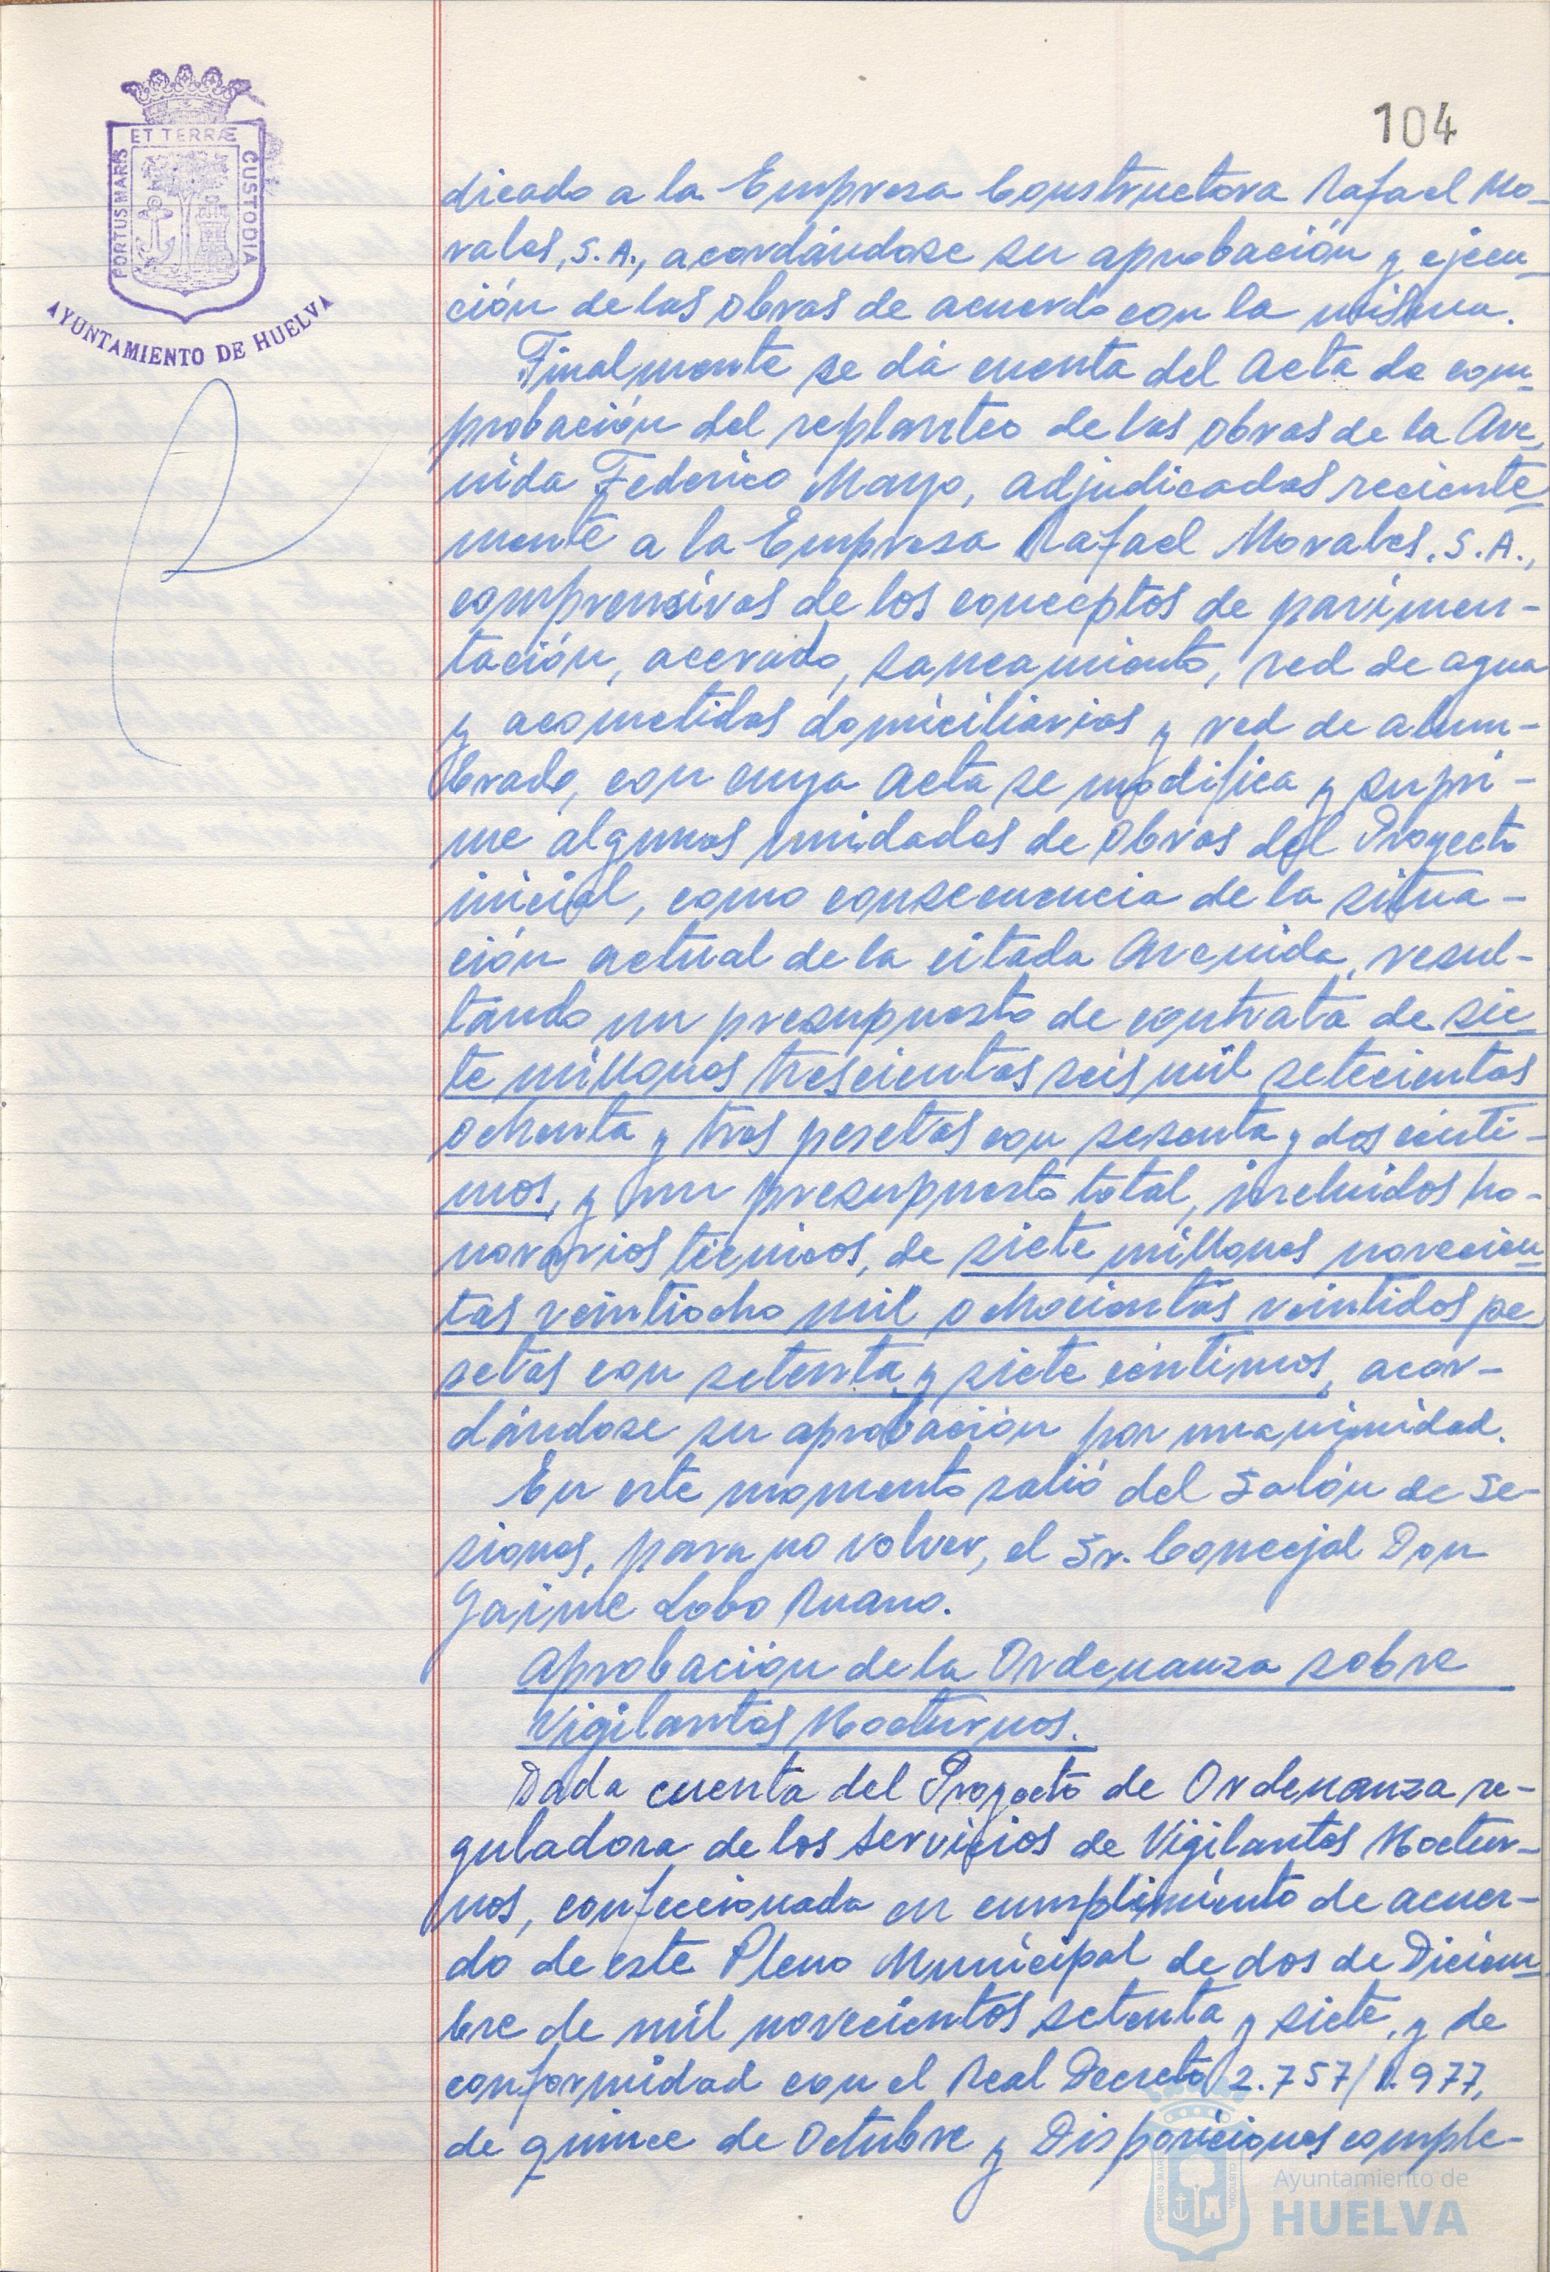 ET TERRÆ
PORTUS MARIS
CUSTODIA
AYUNTAMIENTO DE HUELVA
104
dicado a la Empresa Constructora Rafael Mo-
rales, S.A., acordándose su aprobación y ejecu-
ción de las obras de acuerdo con la misma.
Finalmente se dá cuenta del Acta de com-
probación del replanteo de las obras de la Ave-
nida Federico Mayo, adjudicadas reciente-
mente a la Empresa Rafael Morales, S.A.,
comprensivas de los conceptos de pavimen-
tación, acerado, saneamiento, red de agua
y acometidas domiciliarias y red de alum-
brado, con cuya Acta se modifica y supri-
me algunas unidades de obras del Proyecto
inicial, como consecuencia de la situa-
ción actual de la citada Avenida, resul-
tando un presupuesto de contrata de sie-
te millones trescientas seis mil setecientas
ochenta y tres pesetas con sesenta y dos cénti-
mos, y un presupuesto total, incluidos ho-
norarios técnicos, de siete millones novecien-
tas veintiocho mil ochocientas veintidos pe-
setas con setenta y siete céntimos, acor-
dándose su aprobación por unanimidad.
En este momento salió del Salón de Se-
siones, para no volver, el Sr. Concejal Don
Jaime Lobo Ruano.
Aprobación de la Ordenanza sobre
Vigilantes Nocturnos.
Dada cuenta del Proyecto de Ordenanza re-
guladora de los servicios de Vigilantes Noctur-
nos, confeccionada en cumplimiento de acuer-
do de este Pleno Municipal de dos de Diciem-
bre de mil novecientos setenta y siete, y de
conformidad con el Real Decreto 2.757/1.977,
de quince de Octubre y Disposiciones comple-
Ayuntamiento de
HUELVA